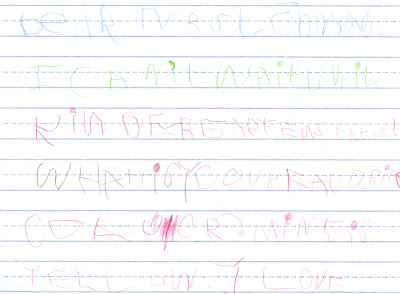 DEAR MRS LEHMAN,
I CAN'T WAIT UNTIL
KINDERGARTEN STARTS!
WHAT IS YOUR FAVORITE
COLOR? MINE IS
YELLOW. I LOVE